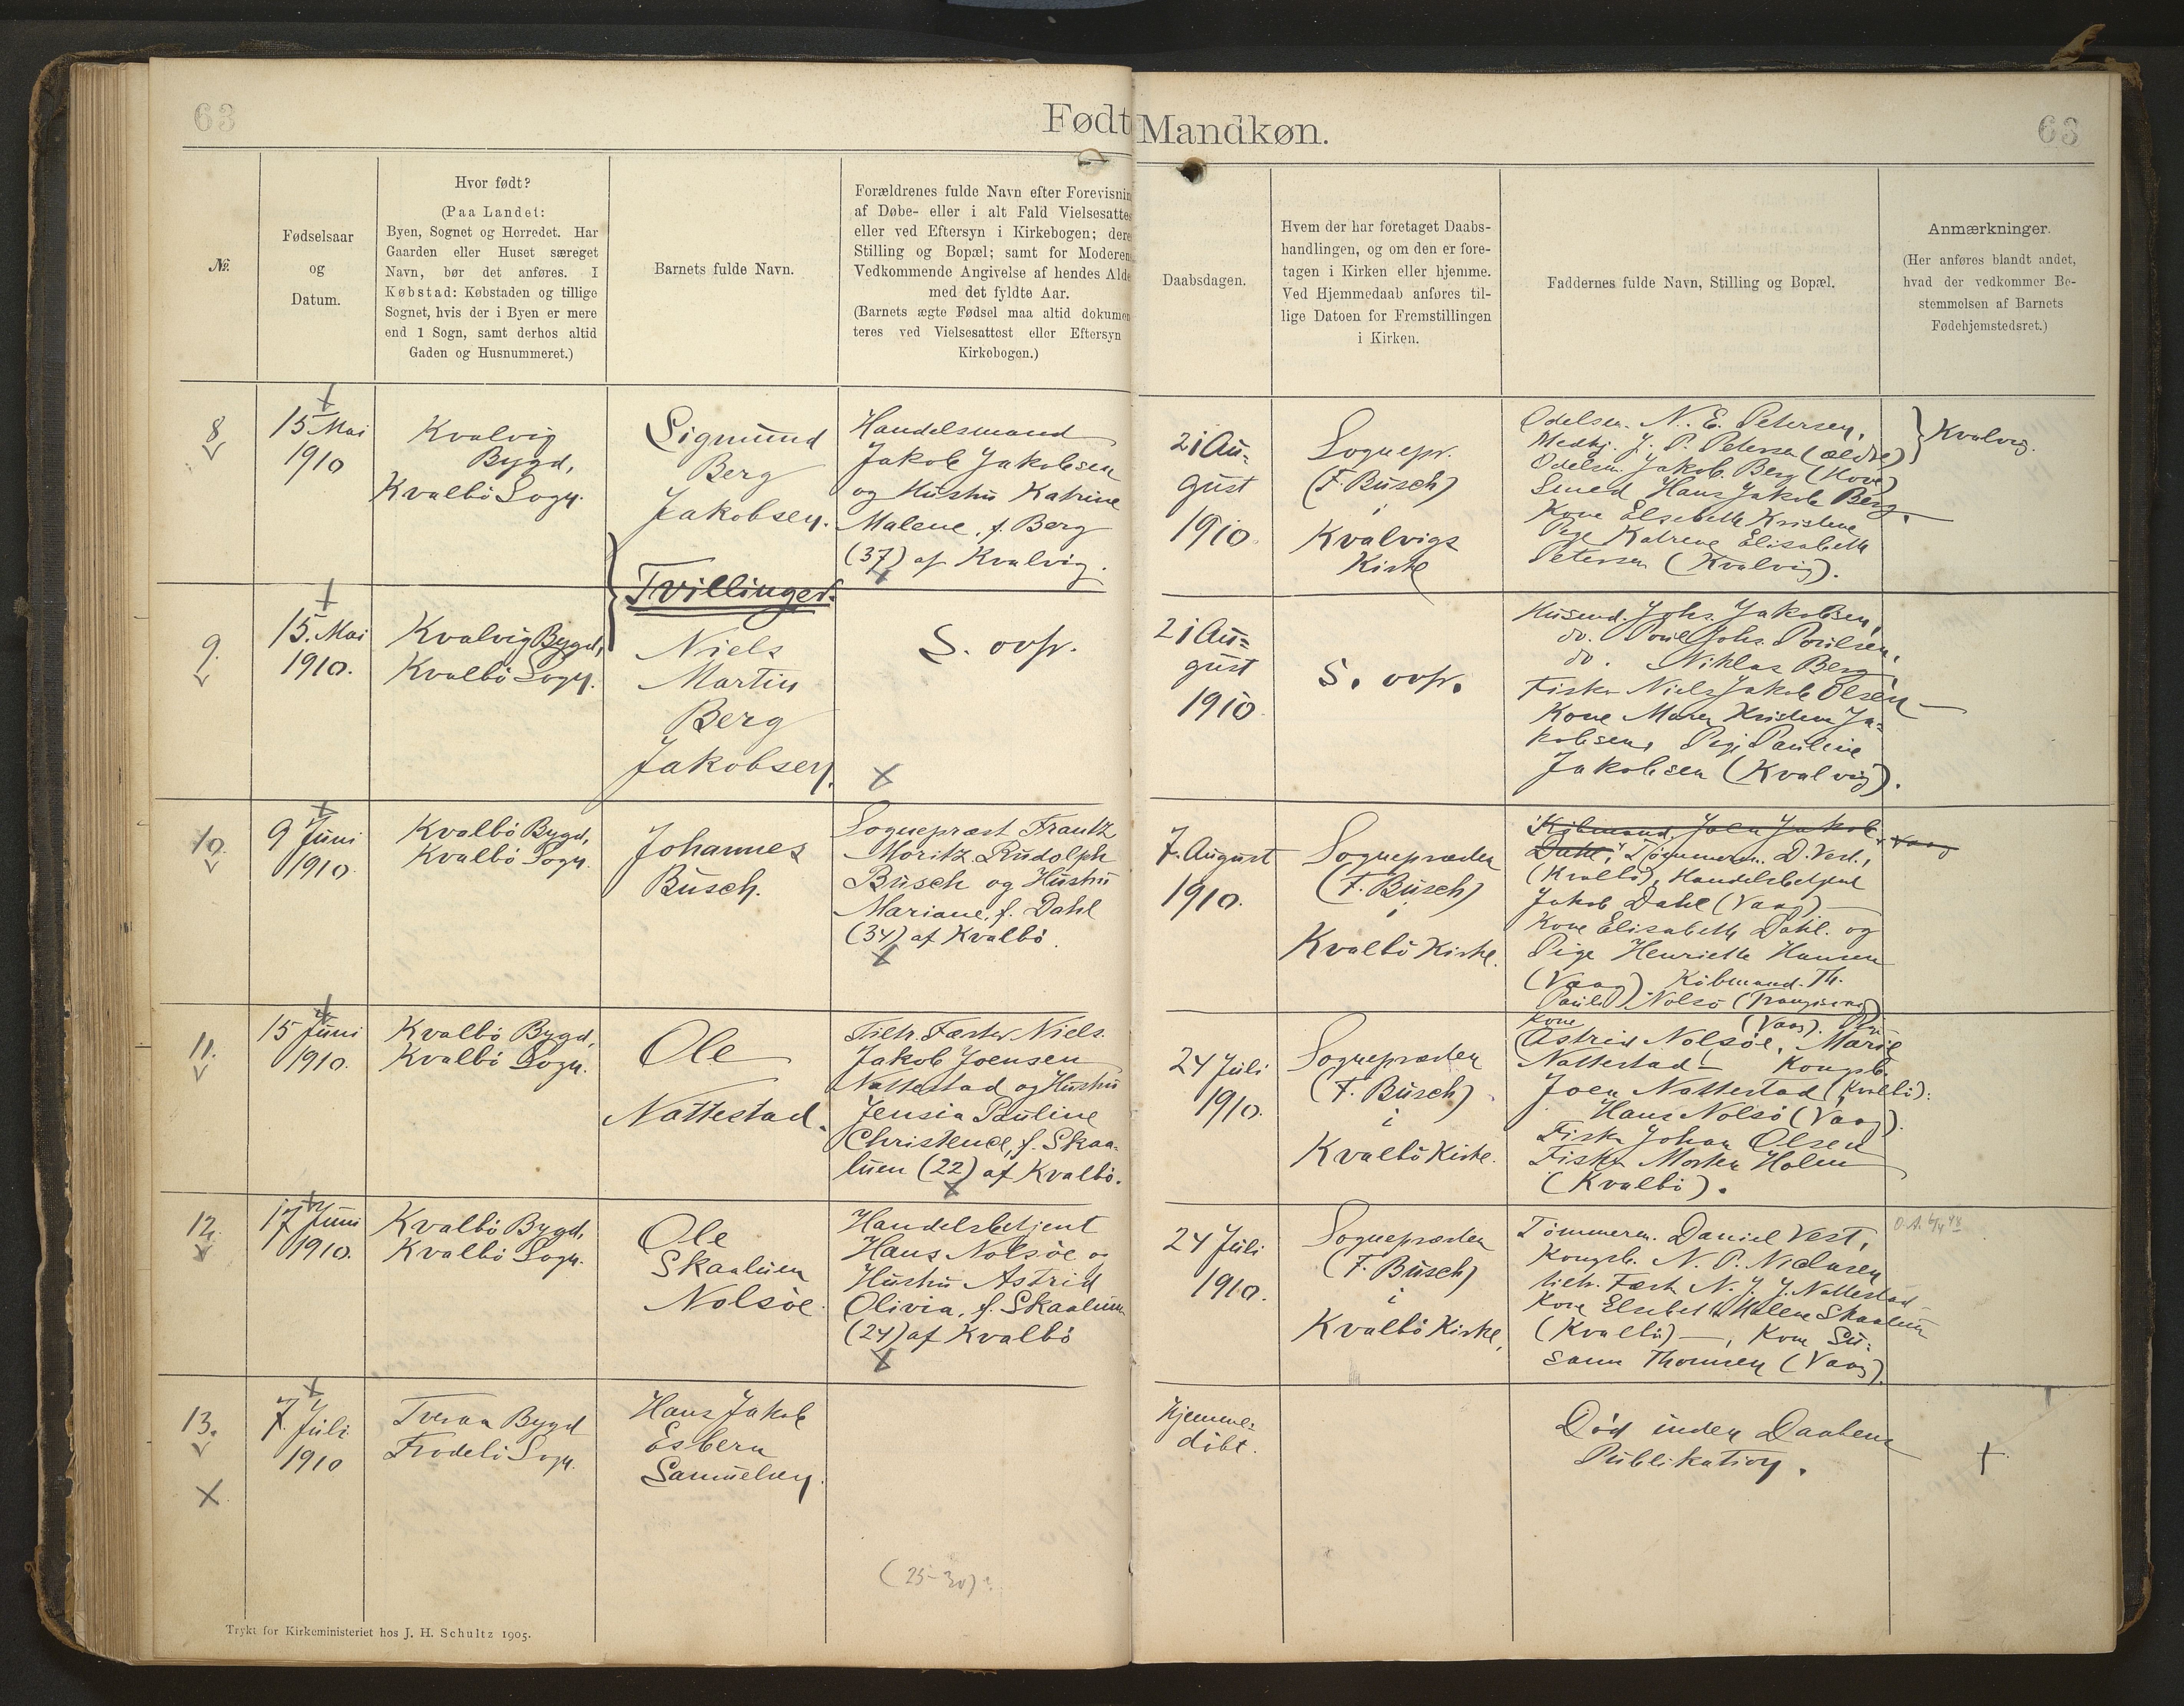 63
Født Mandkøn.
63
№.
Fødselsaar
og
Datum.
Hvor født?
(Paa Landet:
Byen, Sognet og Herredet. Har
Gaarden eller Huset særeget
Navn, bør det anføres. I
Købstad: Købstaden og tillige
Sognet, hvis der i Byen er mere
end 1 Sogn, samt derhos altid
Gaden og Husnummeret.)
Barnets fulde Navn.
Forældrenes fulde Navn efter Forevisnin
af Døbe- eller i alt Fald Vielsesattes
eller ved Eftersyn i Kirkebogen; dere
Stilling og Bopæl; samt for Moderen
Vedkommende Angivelse af hendes Alde
med det fyldte Aar.
(Barnets ægte Fødsel maa altid dokumen
teres ved Vielsesattest eller Eftersyn
Kirkebogen.)
Daabsdagen.
Hvem der har foretaget Daabs-
handlingen, og om den er fore-
tagen i Kirken eller hjemme.
Ved Hjemmedaab anføres til-
lige Datoen for Fremstillingen
i Kirken.
Faddernes fulde Navn, Stilling og Bopæl.
Anmærkninger.
(Her anføres blandt andet,
hvad der vedkommer Be-
stemmelsen af Barnets
Fødehjemstedsret.)
8
15 Mai
1910
Kvalvig
Bygd,
Kvalbö Sogn.
Sigmund
Berg
Jakobsen.
Handelsmand
Jakob Jakobsen
og Hustru Katrine
Malene, f. Berg
(37) af Kvalvig.
21 Au=
gust
1910
Sognepr.
(F. Busch)
i
Kvalvigs
Kirke
Odelsm. N. E. Petersen,
J. P. Petersen (ældre)
Odelsm. Jakob Berg (Hove)
Smed Hans Jakob Berg,
Kone Elsebeth Kristine
Pige Katrine Elisabeth
Petersen (Kvalvig).
Kvalvig.
Tvillinger.
9.
15. Mai
1910.
Kvalvig Bygd,
Kvalbö Sogn.
Niels
Martin
Berg
Jakobsen.
S. ovfr.
21 Au=
gust
1910
S. ovfr.
Husmd. Johs. Jakobsen,
do. Poul Johs. Poulsen,
do. Niklas Berg
Fisker Niels Jakob Olsen
Kone Maren Kristine Ja=
kobsen, Pige Pauline
Jakobsen (Kvalvig).
10.
9 Juni
1910.
Kvalbö Bygd,
Kvalbö Sogn.
Johannes
Busch.
Sognepræst Frantz
Moritz Rudolph
Busch og Hustru
Mariane, f. Dahl
(34) af Kvalbö.
7. August
1910.
Sognepræsten
(F. Busch)
i
Kvalbö Kirke.
Köbmand Joen Jakob Vaag
Dahl, Tömmerm. D. Vest.,
(Kvalbö), Handelsbetjent
Jakob Dahl (Vaag)
Kone Elisabeth Dahl. og
Pige Henriette Hansen
(Vaag) Köbmand Th.
Poul Nolsö (Trangisvaag)
11.
15 Juni
1910.
Kvalbö Bygd,
Kvalbö Sogn.
Ole
Nattestad.
Tiltr. Fæster Niels
Jakob Joensen
Nattestad og Hustru
Jensia Pauline
Christence, f. Skaa-
luen (22) af Kvalbö.
24 Juli
1910.
Sognepræsten
(F. Busch)
i
Kvalbö Kirke.
Kone (Vaag). Pige
Astrid Nolsöe, Marie
Nattestad - Kongsb.
Joen Nattestad (Kvalbö).
Hans Nolsö (Vaag).
Fisker Johan Olsen
Fisker Morten Holm
(Kvalbö).
12.
17 Juni
1910.
Kvalbö Bygd,
Kvalbö Sogn.
Ole
Skaaluen
Nolsöe.
Handelsbetjent
Hans Nolsöe og
Hustru Astrid
Olivia, f. Skaaluen
(24) af Kvalbö
24 Juli
1910.
Sognepræsten
(F. Busch)
i
Kvalbö Kirke,
Tömmerm. Daniel Vest,
Kongsb. N. P. Niclasen
tiltr. Fæst. N. J. J. Nattestad
Kone Elsebeth Malene Skaaluen
(Kvalbö) -, Kone Su=
sanna Thomsen (Vaag).
13.
7. Juli
1910
Tveraa Bygd
Frodebö Sogn.
Hans Jakob
Esbern
Samuelsen.
(25-30)?
Hjemme=
döbt.
Död inden Daabens
Publikation.
Trykt for Kirkeministeriet hos J. H. Schultz 1905.